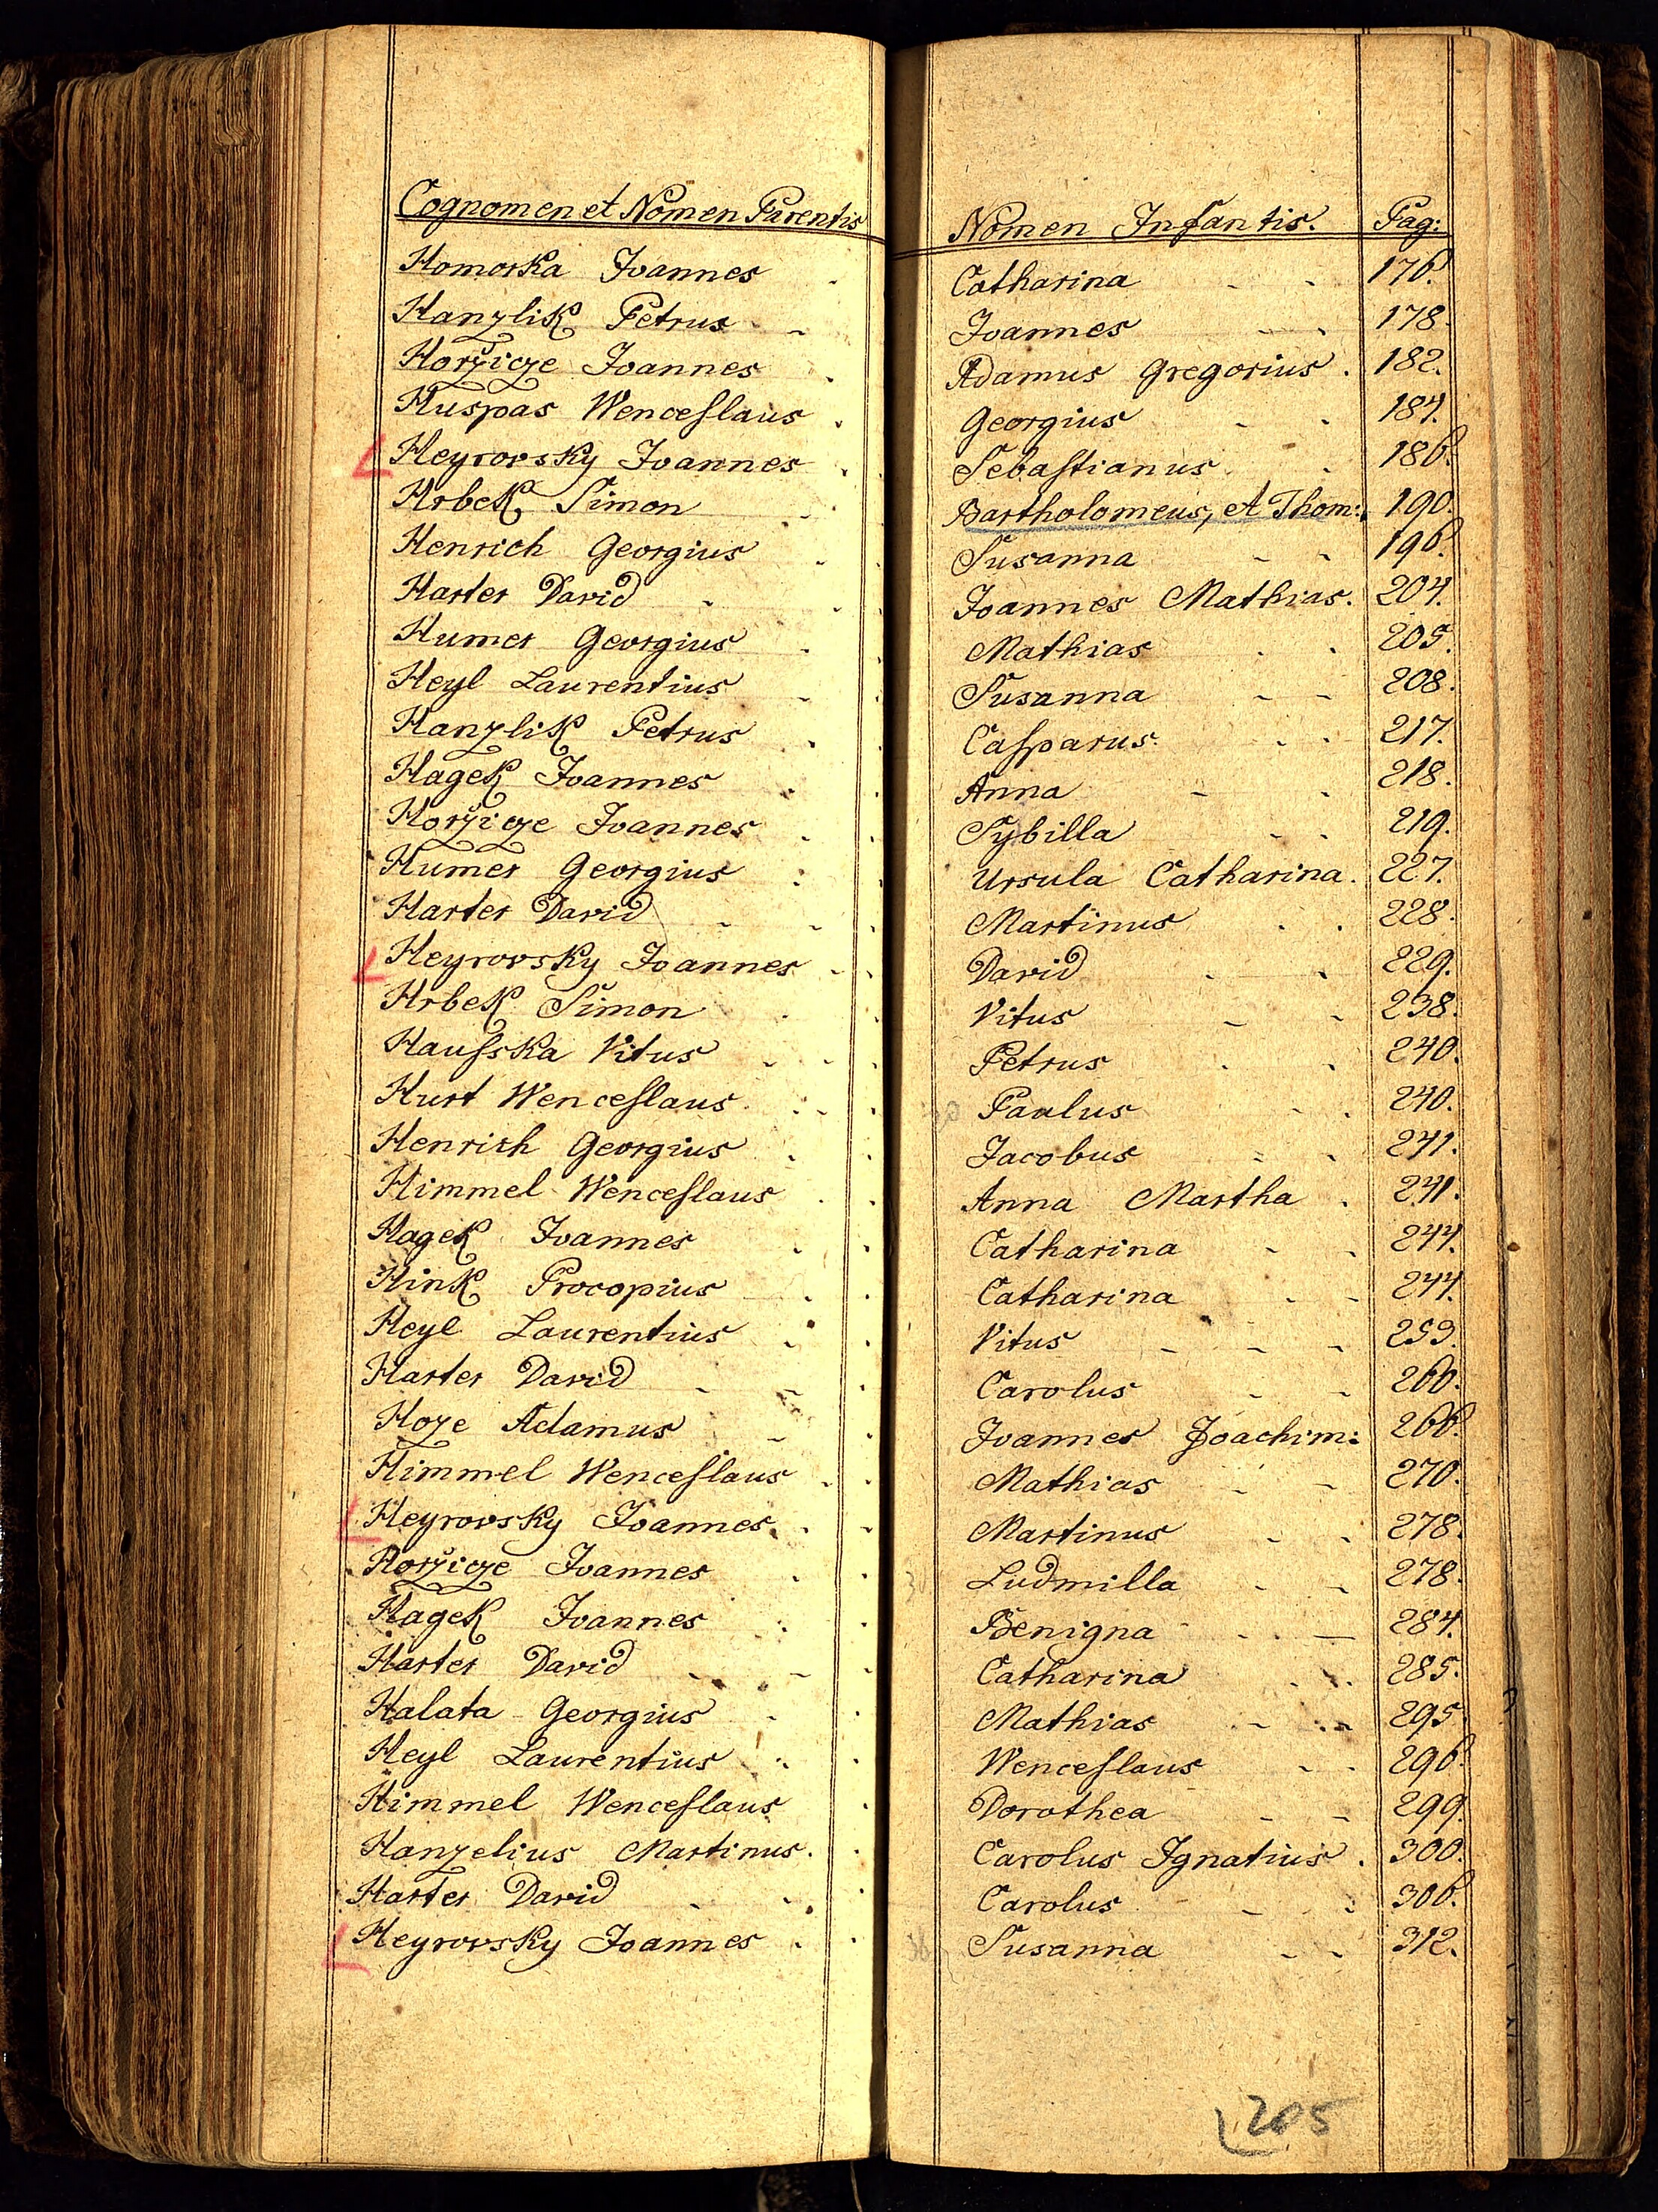 Cognomen et Nomen Parentis Nomen Infantis. Pag:
Homorka Joannes Catharina 176.
Hanzlik Petrus Joannes 178.
Horžicze Joannes Adamus Gregorius. 182.
Huspas Wenceslaus Georgius 184.
Heyrovsky Joannes Sebastianus 186.
Hrbek Simon Bartholomeus, et Thom: 190.
Henrich Georgius Susanna 196.
Harter David Joannes Mathias. 204.
Humer Georgius Mathias 205.
Heyl Laurentius Susanna 208.
Hanzlik Petrus Casparus. 217.
Hagek Joannes Anna 218.
Horžicze Joannes Sybilla 219.
Humer Georgius Ursula Catharina. 227.
Harter David Martinus 228.
Heyrovsky Joannes David 229.
Hrbek Simon Vitus 238.
Hausska Vitus Petrus 240.
Hurt Wenceslaus Paulus 240.
Henrich Georgius Jacobus 241.
Himmel Wenceslaus Anna Martha 241.
Hagek Joannes Catharina 244.
Hink Procopius Catharina 244.
Heyl Laurentius Vitus 253.
Harter David Carolus 260.
Hoze Adamus Joannes Joachim: 266.
Himmel Wenceslaus Mathias 270.
Heyrovsky Joannes Martinus 278.
Horžicze Joannes Ludmilla 278.
Hagek Joannes Benigna 284.
Harter David Catharina 285.
Halata Georgius Mathias 295.
Heyl Laurentius Wenceslaus 296.
Himmel Wenceslaus Dorothea 299.
Hanzelius Martinus. Carolus Ignatius. 300.
Harter David Carolus 306.
Heyrovsky Joannes Susanna 312.
205